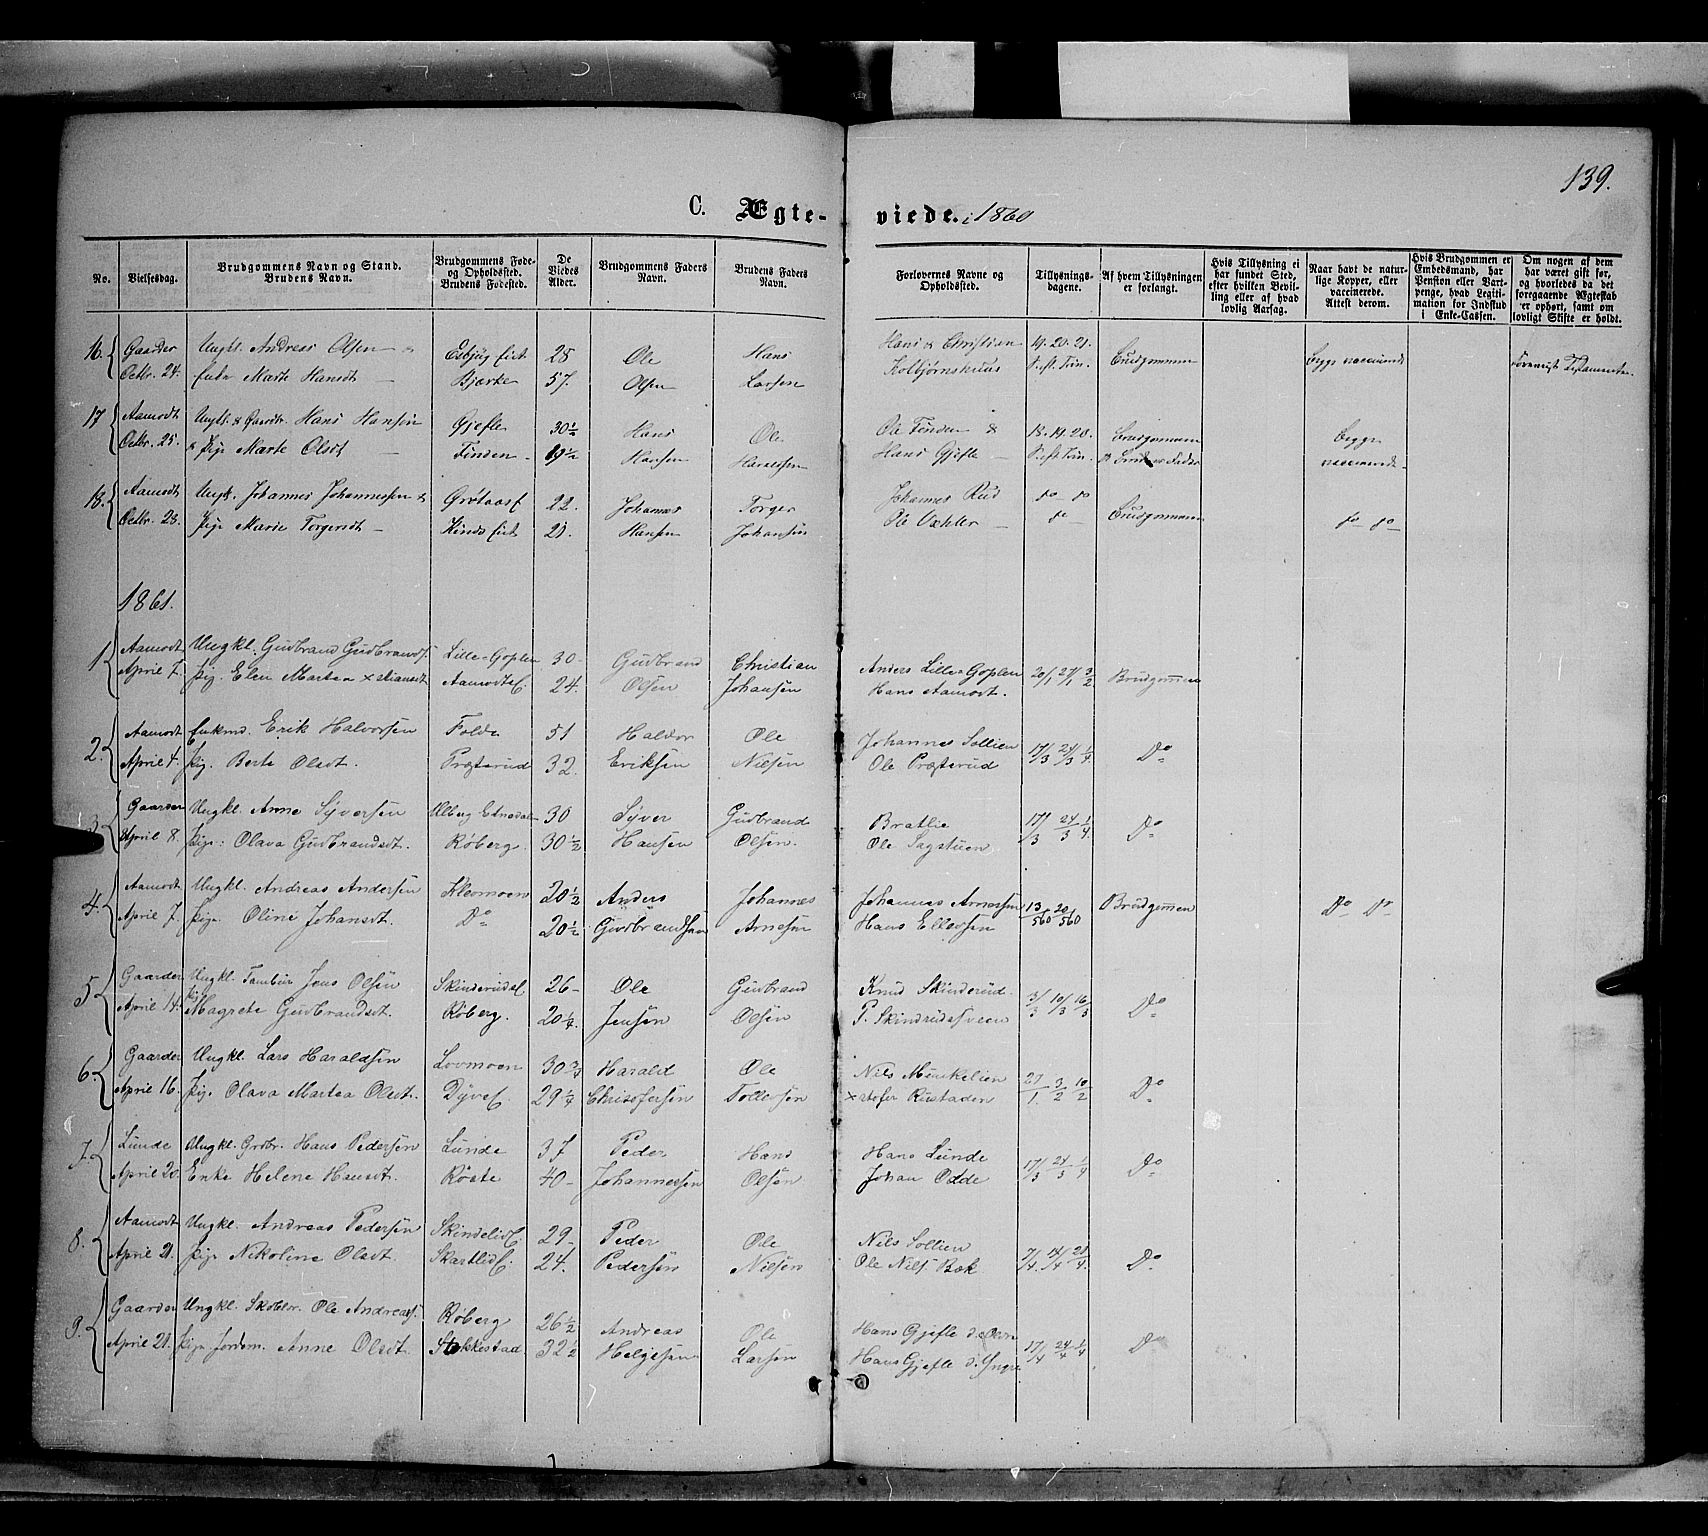 139.
C. Ægte- viede. i 1860
No. Vielsesdag. Brudgommens Navn og Stand. Brudens Navn. Brudgommens Føde- og Opholdssted. Brudens Fødested. De Viedes Alder. Brudgommens Faders Navn. Brudens Faders Navn. Forlovernes Navne og Opholdssted. Tillysnings-dagene. Af hvem Tillysningen er forlangt. Hvis Tillysning ei har fundet Sted, efter hvilken Bevilling eller af hvad lovlig Aarsag. Naar havt de naturlige Kopper, eller vaccinerede. Attest derom. Hvis Brudgommen er Embedsmand, har Pension eller Vartpenge, hvad Legitimation for Indskud i Enke-Cassen. Om nogen af dem har været gift før, og hvorledes da det foregaaende Ægteskab er ophørt, samt om lovligt Skifte er holdt.
16. Gaarder Ungk. Andreas Olsen & Esbjug eiet 28 Ole Hans Hans & Christian 19. 20. 21. Brudgommen Begge vaccinerede
Octbr. 24. Enke Marte Hansdt — Bjerke 57. Olsen Larsen Kolbjørnshuus
17 Aamodt Ungk. & Gaardr. Hans Hansen Gjefle 30½ Hans Ole Ole Finden & 18. 19. 20. Brudgommen Begge
Octbr. 25. & Pige Marte Olsdt — Finden 19½ Hansen Haraldsen Hans Gjefle — vaccinerede
18. Aamodt Ungk. Johannes Johannessen & Grøtaasf 22. Johannes Torger Johannes Rud do do Brudgommen do do
Octbr. 28. Pige Marie Torgersdt — Kinds eiet 21. Hansen Johansen Ole Væhler — do
1861.
1 Aamodt Ungkl. Gudbrand Gudbrands. Lille-Goplen 30 Gudbrand Christian Anders Lille-Goplen 20/1 27/1 3/2 Brudgommen
April 7. Pig. Elen Martea xstiansdt Aamodtsf. 24. Olsen Johansen Hans Aamodt.
2. Aamodt Enkmd. Erik Halvorsen Folde 51 Haldor Ole Johannes Sollien 17/3 24/3 1/4 Do
April 4. Pig. Berte Olsdt. Præsterud 32. Eriksen Nilsen Ole Præsterud
3. Gaarder Ungkl. Arne Syversen Ulberg Etnedal 30 Syver Gudbrand Bratlie 17/3 24/3 1/4 Do
April 8. Pige: Olava Gudbrandsdt. Røberg 30½ Hansen Olsen. Ole Sagstuen
4. Aamodt Ungkl. Andreas Andersen Klevmoen 20½ Anders Johannes Johannes Arnesen 13/560 20/560 Brudgommen Do Do
April 7. Pige Oline Johansdt. Do 20½ Gudbrandsen Arnesen Hans Ellevsen
5 Gaarder Ungkl. Tambur Jens Olsen Skinderudsf. 26 Ole Gudbrand Knud Skinderud 3/3 10/3 16/3 Do
April 14. Pig. Magrete Gudbrandsdt. Røberg. 20¼ Jensen Olsen P. Skindrudsveen
6. Gaarder Ungkl. Lars Haraldsen Lovmoen 30¾ Harald Ole Nils Munkelien 27/1. 3/2 10/2 Do
April 16. Pige Olava Martea Olsdt. Dyvef. 29¼ Chrisofersen Tollevsen xstofer Rustaden
7. Lunde Ungkl. Grdbr. Hans Pedersen Lunde 37 Peder Hans Hans Lunde 17/3 24/3 1/4 Do
April 20. Enke Helene Hansdt. Røste 40 Johannessen Olsen Johan Odde
8. Aamodt Ungkl. Andreas Pedersen Skindelidf. 29 Peder Ole Nils Sollien 7/4. 14/4 21/4. Do
April 21. Pige Nikoline Olsdt. Skartlidf. 24. Pedersen Nilsen Ole Nils Bæk
9. Gaarder Ungkl. Skoblør. Ole Andreass. Røberg 26½ Andreas Ole Hans Gjefle d. Øvre 17/4 24/4 1/4 Do
April 21. Pige Jordem. Anne Olsdt. Stokkestad 32½ Helgesen Larsen Hans Gjefle d. Yngre